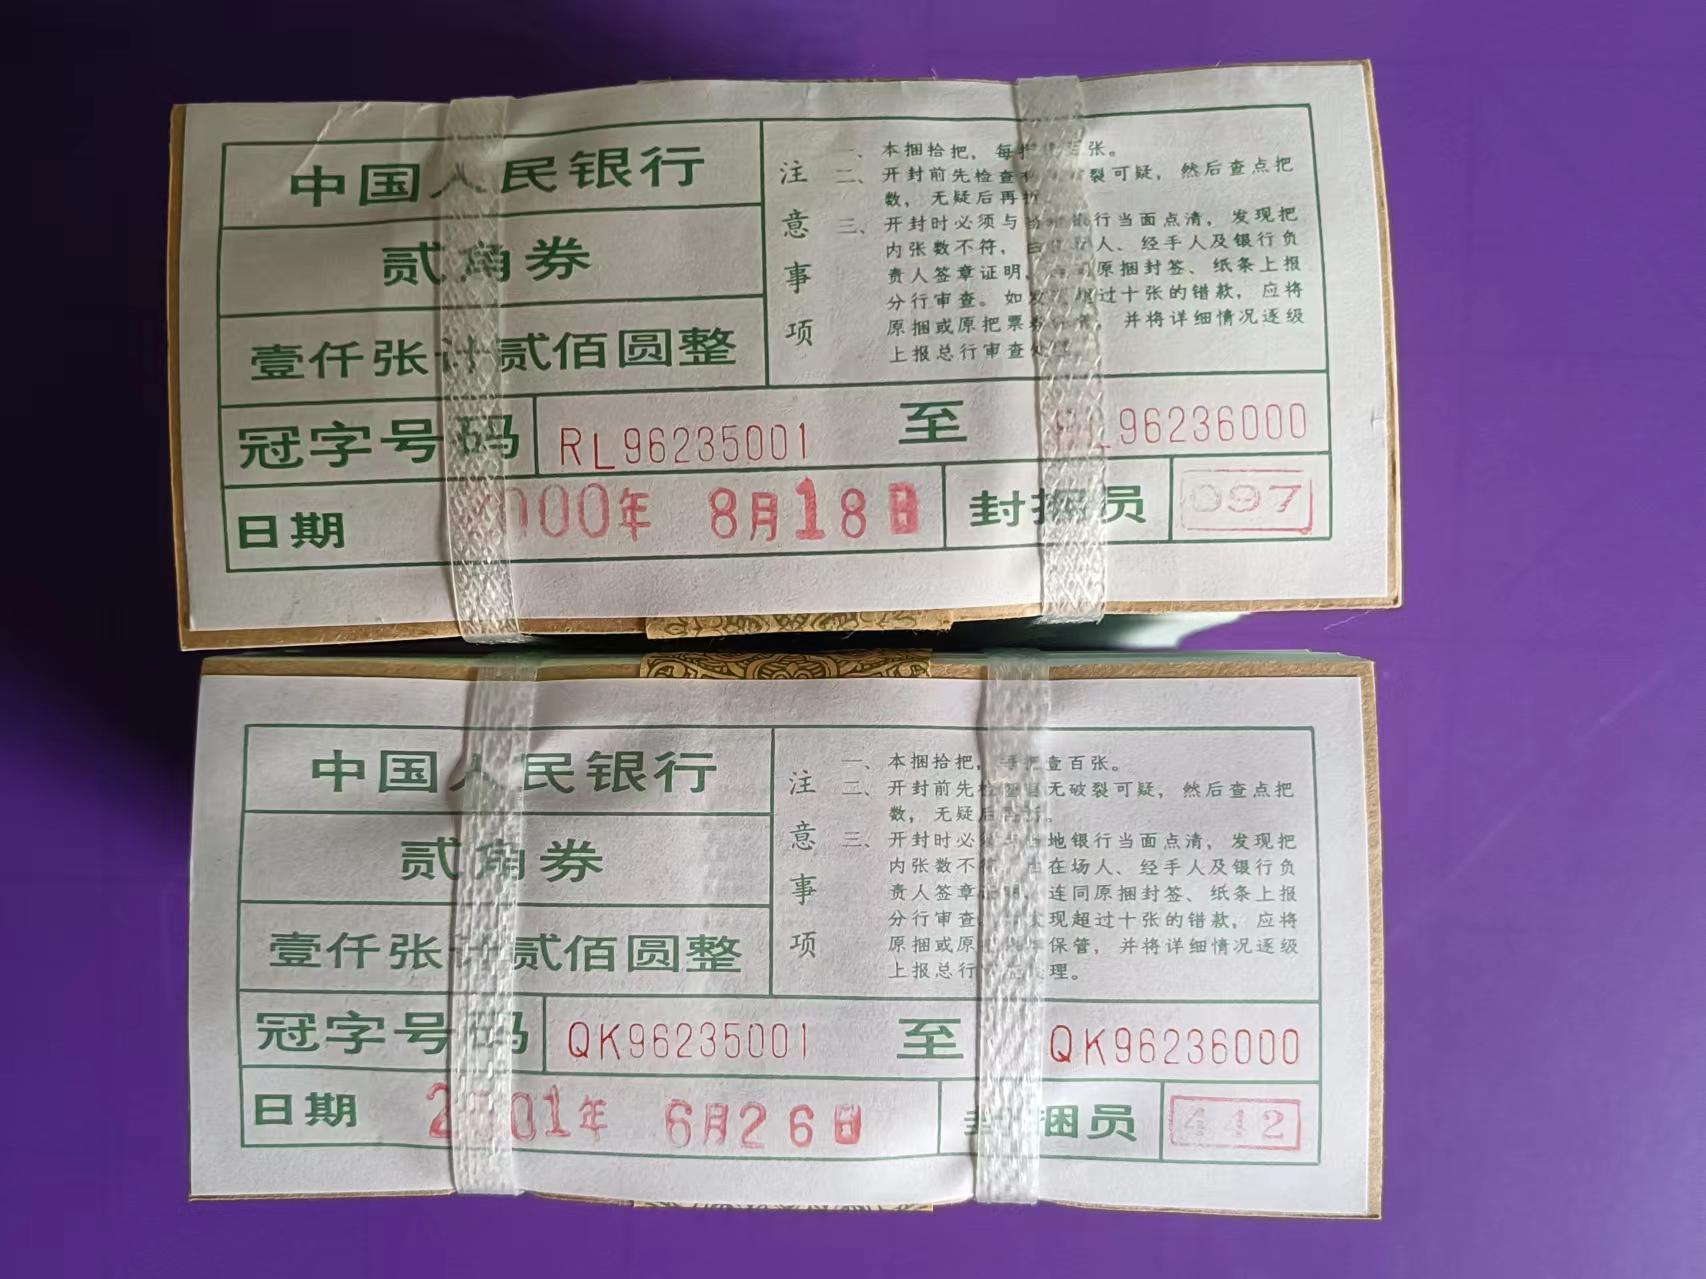 中国人民银行
贰角券
壹仟张计贰佰圆整
注意事项
一、本捆拾把，每把 百张。
二、开封前先检查 裂可疑，然后查点把
数，无疑后再拆
三、开封时必须与当地银行当面点清，发现把
内张数不符， 人、经手人及银行负
责人签章证明， 原捆封签、纸条上报
分行审查。如发 超过十张的错款，应将
原捆或原把票券保管，并将详细情况逐级
上报总行审查处理
冠字号码 RL96235001 至 RL96236000
日期 2000年 8月18日 封捆员 097
中国人民银行
贰角券
壹仟张计贰佰圆整
注意事项
一、本捆拾把， 壹百张。
二、开封前先检 无破裂可疑，然后查点把
数，无疑后 。
三、开封时必须与当地银行当面点清，发现把
内张数不符 在场人、经手人及银行负
责人签章证明，连同原捆封签、纸条上报
分行审查。 发现超过十张的错款，应将
原捆或原 保管，并将详细情况逐级
上报总行 处理。
冠字号码 QK96235001 至 QK96236000
日期 2001年 6月26日 封捆员 442